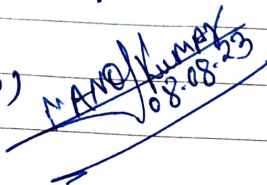 MANOJ KUMAR
08.08.23